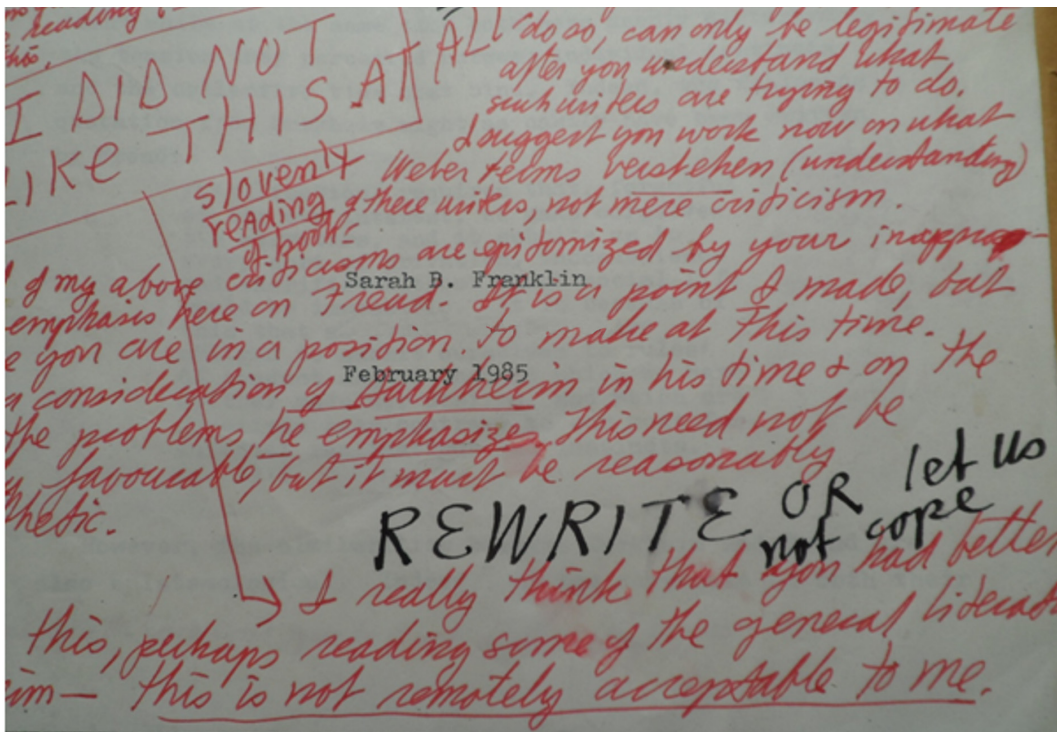 reading
this.
I DID NOT
LIKE THIS AT ALL
do so, can only be legitimate
after you understand what
such writers are trying to do.
I suggest you work now on what
Weber terms verstehen (understanding)
of these writers, not mere criticism.
slovenly
reading
of book-
of my above criticisms are epitomized by your inapprop-
Sarah B. Franklin
emphasis here on Freud. It is a point I made, but
you are in a position to make at this time.
February 1985
consideration of Durkheim in his time & on the
the problems he emphasizes. This need not be
favourable, but it must be reasonably
thetic.
REWRITE OR let us
not cope
I really think that you had better
this, perhaps reading some of the general literat
eim— this is not remotely acceptable to me.